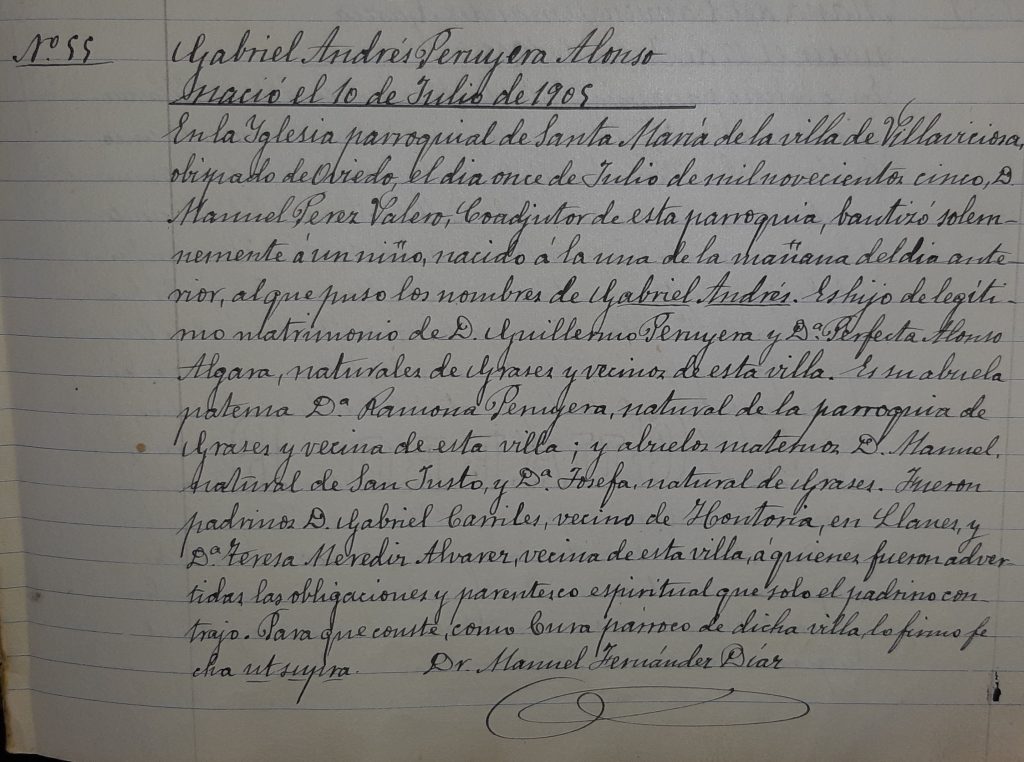 Nº 55
Gabriel Andrés Peruyera Alonso
Nació el 10 de Julio de 1905
En la Yglesia parroquial de Santa María de la villa de Villaviciosa,
obispado de Oviedo, el dia once de Julio de mil novecientos cinco, D.
Manuel Perez Valero, Coadjutor de esta parroquia, bautizó solem-
nemente á un niño, nacido á la una de la mañana del dia ante-
rior, al que puso los nombres de Gabriel Andrés. Es hijo de legíti-
mo matrimonio de D. Guillermo Peruyera y Dª Perfecta Alonso
Algara, naturales de Grases y vecinos de esta villa. Es su abuela
paterna Dª Ramona Peruyera, natural de la parroquia de
Grases y vecina de esta villa; y abuelos maternos D. Manuel,
natural de San Justo, y Dª Josefa, natural de Grases. Fueron
padrinos D. Gabriel Carriles, vecino de Hontoria, en Llanes, y
Dª Teresa Merediz Alvarez, vecina de esta villa, á quienes fueron adver-
tidas las obligaciones y parentesco espiritual que solo el padrino con
trajo. Para que conste, como Cura párroco de dicha villa, lo firmo fe
cha ut supra. Dr. Manuel Fernández Díaz